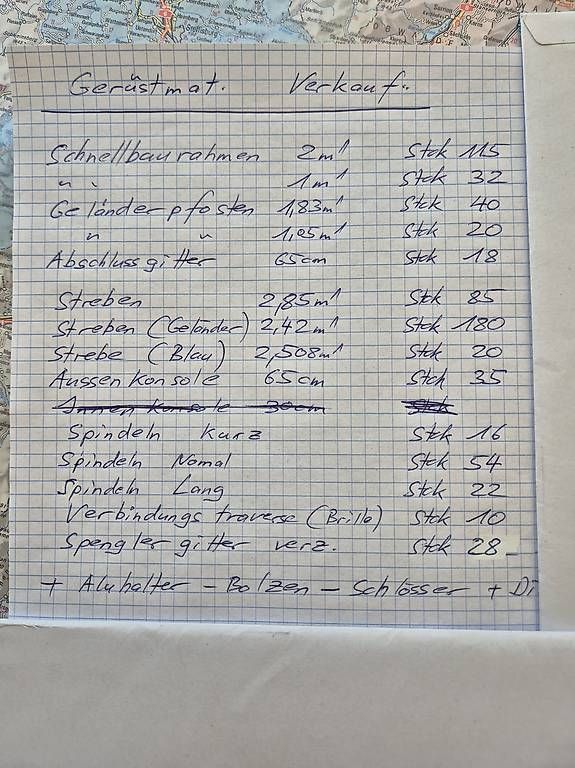 Gerüstmat. Verkauf.
Schnellbaurahmen 2m¹ Stck 115
" " 1m¹ Stck 32
Geländerpfosten 1,83m¹ Stck 40
" " 1,05m¹ Stck 20
Abschlussgitter 65cm Stck 18
Streben 2,85m¹ Stck 85
Streben (Geländer) 2,42m¹ Stck 180
Strebe (Blau) 2,508m¹ Stck 20
Aussen Konsole 65cm Stck 35
Innen Konsole 30cm Stck
Spindeln Kurz Stck 16
Spindeln Nomal Stck 54
Spindeln Lang Stck 22
Verbindungs traverse (Brille) Stck 10
Spengler gitter verz. Stck 28
+ Aluhalter - Bolzen - Schlösser + Di